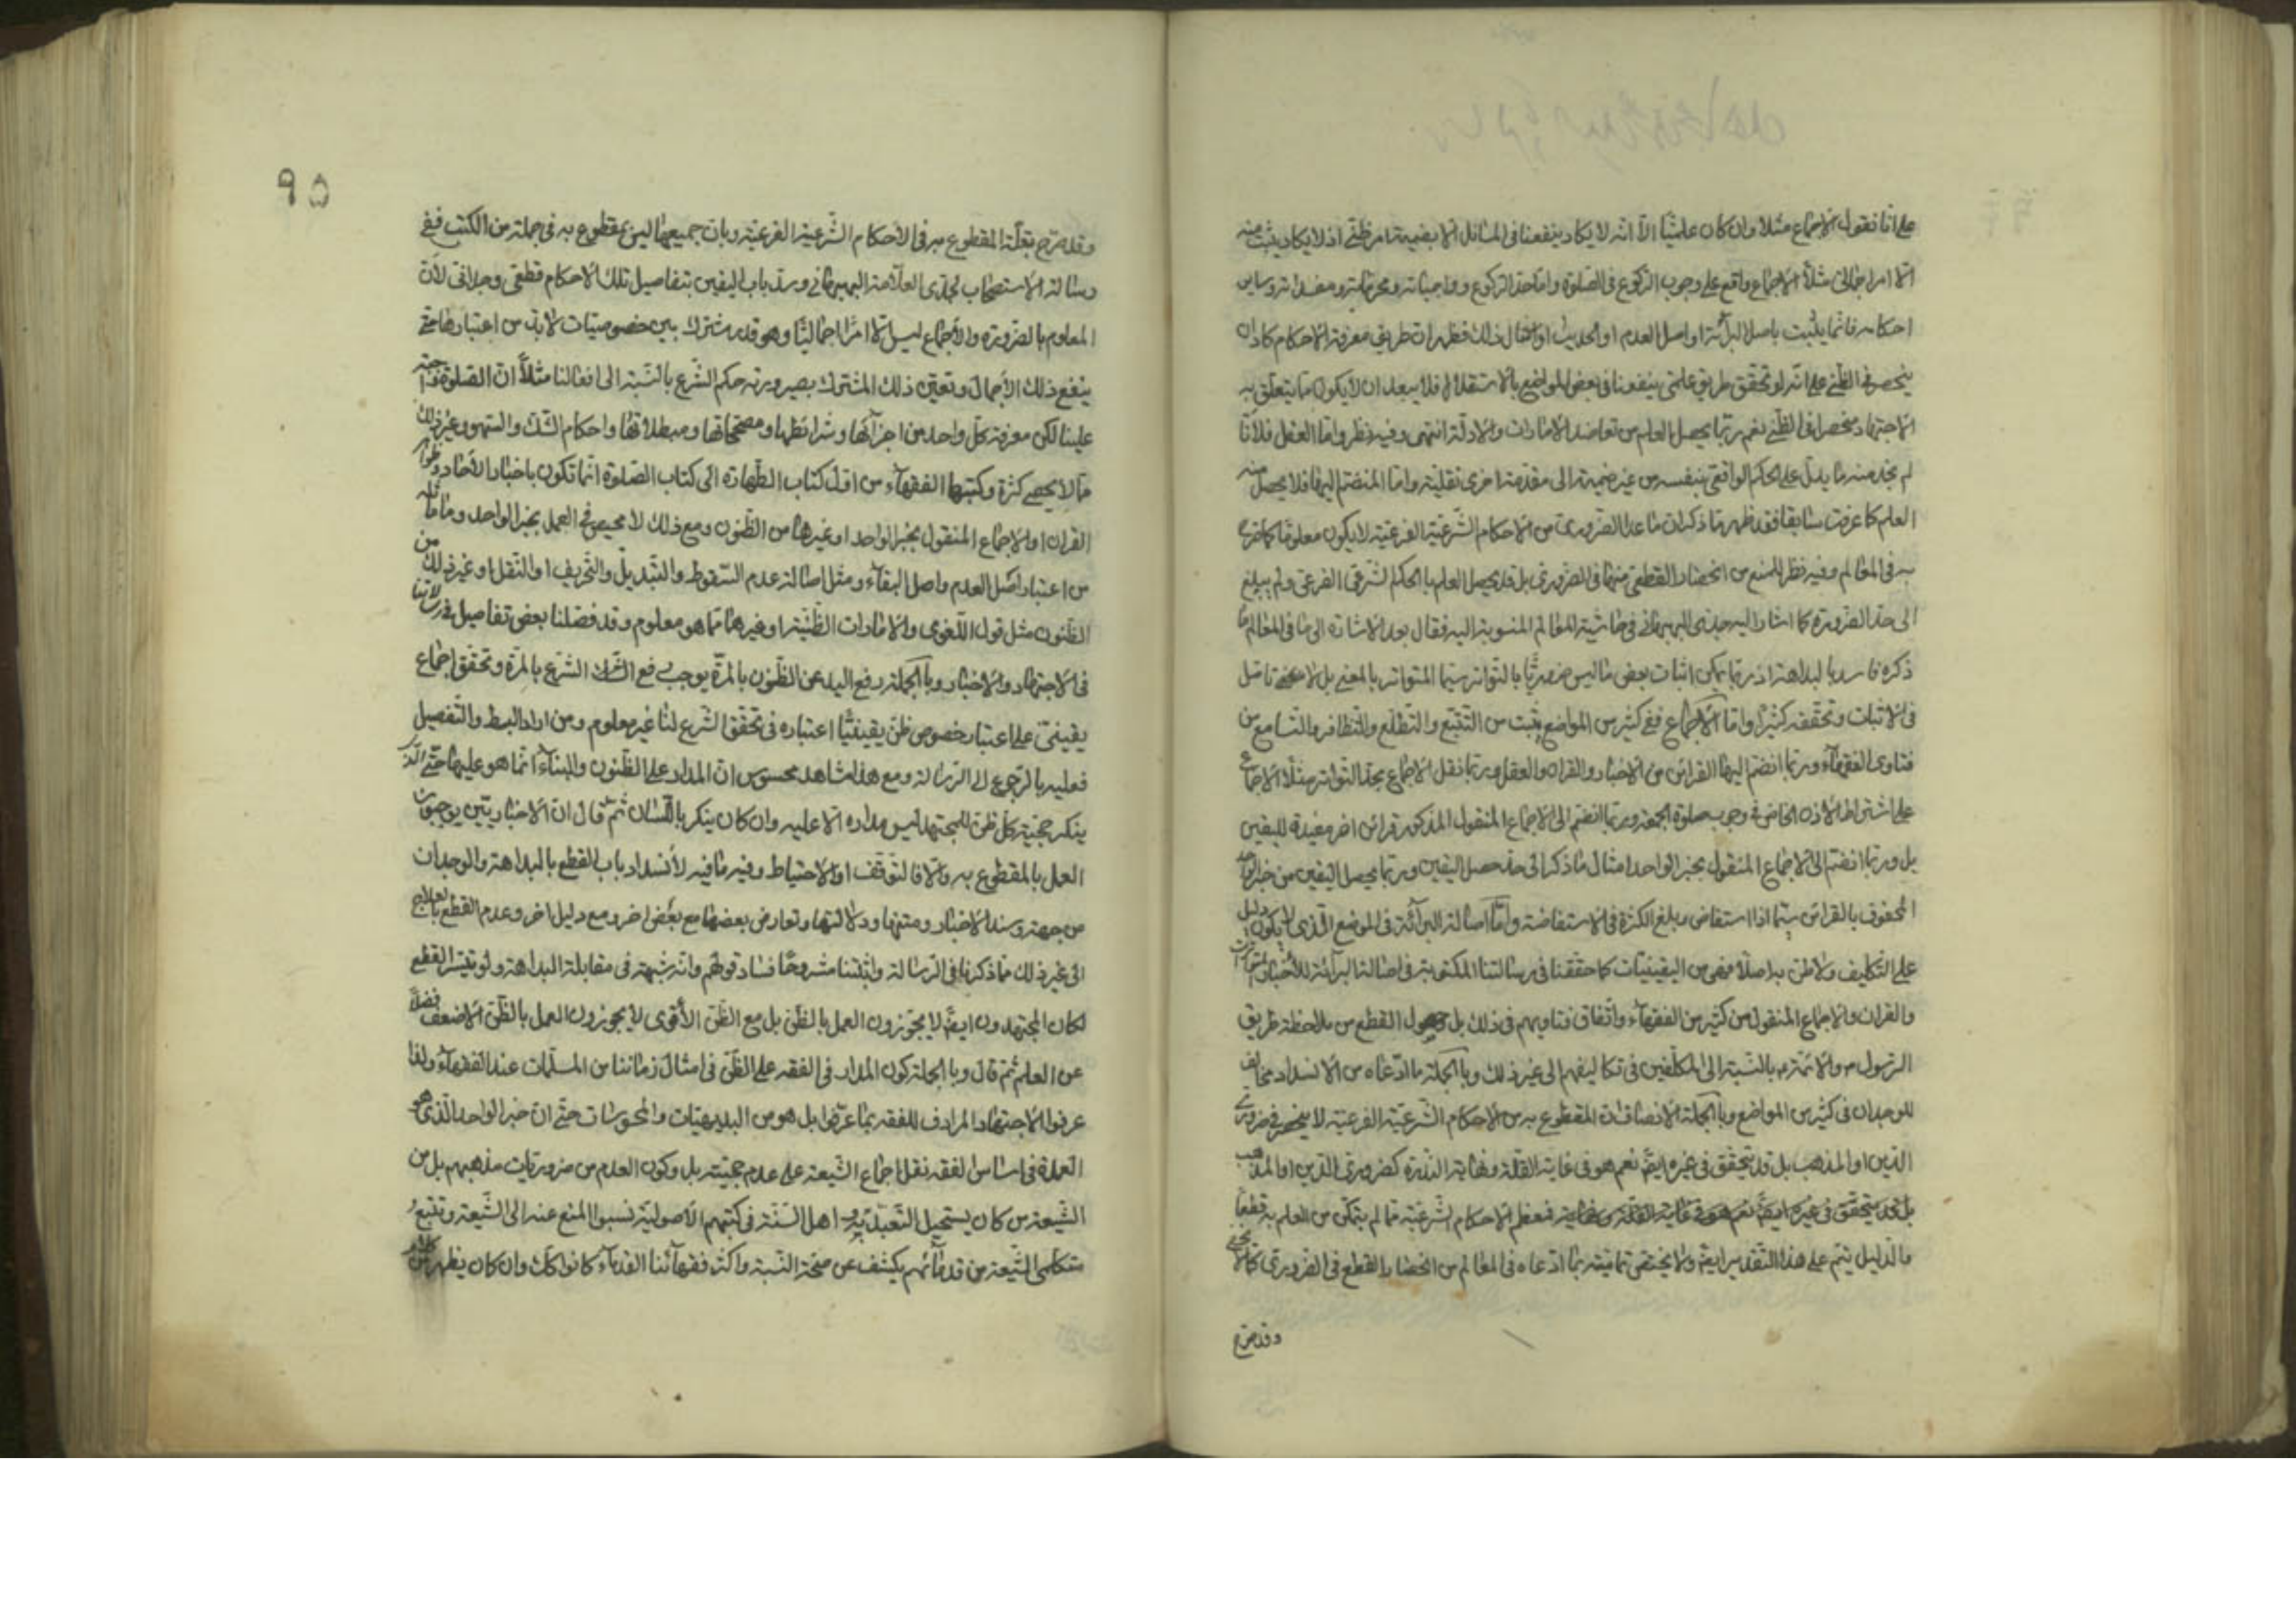 على انا نقول الاجماع مثلا وان كان علميّا الّا انه لا يكاد ينفعنا فى المسائل الا بضميمة امر ظنّى اذ لا يكاد يثبت منه
الّا امر اجمالىّ مثلاً الاجماع واقع على وجوب الركوع فى الصلوة وامّا حدّ الركوع وواجباته ومحرّماته ومفسداته وساير
احكامه فانما يثبت باصل البرائة او اصل العدم او الحديث او امثال ذلك فظهر ان طريق معرفة الاحكام كاد ان
ينحصر فى الظنّى على انه لو تحقق طريق علمىّ ينفعنا فى بعض المواضع بالاستقلال فلا يبعد ان لا يكون ما يتعلّق به
الاجتهاد منحصرا فى الظنّى نعم ربّما يحصل العلم من تعاضد الامارات والادلّة انتهى وفيه نظر وامّا العقل فلانّا
لم نجد منه ما يدلّ على الحكم الواقعى بنفسه من غير ضميمة الى مقدّمة اخرى نقليّة وامّا المنضمّ اليها فلا يحصل منه
العلم كما عرفت سابقا فقد ظهر ممّا ذكر ان ما عدا الضرورى من الاحكام الشّرعيّة الفرعيّة لا يكون معلوما كما صرّح
به فى المعالم وفيه نظر للمنع من انحصار القطعى منها فى الضرورى بل قد يحصل العلم بالحكم الشّرعى الفرعى ولم يبلغ
الى حدّ الضرورة كما اشار اليه جدّى البهبهانى فى حاشية المعالم المنسوبة اليه فقال بعد الاشارة الى ما فى المعالم ما
ذكره فاسد بالبداهة اذ ربّما يمكن اثبات بعض ما ليس ضروريّا بالتّواتر سيّما المتواتر بالمعنى بل لا يخفى تأمّل
فى الاثبات وتحقّقه كثيرا وامّا الاجماع ففى كثير من المواضع يثبت من التّتبّع والتطلّع والتظافر والتسامع من
فتاوى الفقهاء وربّما انضمّ اليها القرائن من الاخبار والقرآن والعقل وربّما نقل الاجماع بحدّ التواتر مثلا الاجماع
على اشتراط الاذن الخاص فى وجوب صلوة الجمعة وربّما انضمّ الى الاجماع المنقول المذكور قرائن اخر مفيدة لليقين
بل وربّما انضمّ الى الاجماع المنقول بخبر الواحد امثال ما ذكر الى حدّ حصل اليقين وربّما يحصل اليقين من خبر الواحد
المحفوف بالقرائن سيّما اذا استفاض وبلغ الكثرة فى الاستفاضة وامّا اصالة البرائة فى الموضع الّذى لا يكون دليل
على التكليف ولا ظنّ به اصلا فهى من اليقينيّات كما حقّقنا فى رسالتنا المكتوبة فى اصالة البرائة للاخبار المتواترة
والقران والاجماع المنقول من كثير من الفقهاء واتّفاق فتاويهم فى ذلك بل وحصول القطع من ملاحظة طريق
الرّسول ص والائمّة م بالنّسبة الى المكلّفين فى تكاليفهم الى غير ذلك وبالجملة ما ادّعاه من الانسداد مخالف
للوجدان فى كثير من المواضع وبالجملة الانصاف ان المقطوع به من الاحكام الشّرعيّة الفرعيّة لا ينحصر فى ضرورى
الدّين او المذهب بل قد يتحقق فى غيره ايضً نعم هو فى غاية القلّة ونهاية النّدرة كضرورى الدّين او المذهب
بل قد يتحقق فى غيره ايضً نعم هو فى غاية القلّة ونهاية فمعظم الاحكام الشّرعيّة ممّا لم يتمكّن من العلم به قطعا
فالدّليل يتمّ على هذا التقدير ايضً ولا يختصّ تماميّته بما ادّعاه فى المعالم من انحصار القطع فى الضرورى كما لا يخفى
وقد صرّح
٩٥
وقد صرّح بقلّة المقطوع به فى الاحكام الشّرعيّة الفرعيّة وبانّ جميعها ليس بمقطوع به فى جملة من الكتب ففى
رسالة الاستصحاب لجدّى العلّامة البهبهانى وسدّ باب اليقين بتفاصيل تلك الاحكام قطعى وجدانى لأنّ
المعلوم بالضرورة والاجماع ليس الّا امرا اجماليّا وهو قدر مشترك بين خصوصيّات لا بدّ من اعتبارها حتى
ينفع ذلك الاجمال وتعيّن ذلك المشترك بصيرورته حكم الشّرع بالنّسبة الى افعالنا مثلاً انّ الصلوة واجبة
علينا لكن معرفة كلّ واحد من اجزائها وشرائطها ومصحّحاتها ومبطلاتها واحكام الشّك والسّهو وغير ذلك
ممّا لا يحصى كثرة وكتبها الفقهاء من اوّل كتاب الطّهارة الى كتاب الصلوة انّما تكون باخبار الآحاد وظواهر
القران او الاجماع المنقول بخبر الواحد او غيرها من الظّنون ومع ذلك لا محيص فى العمل بخبر الواحد وما ماثله
من اعتبار اصل العدم واصل البقاء ومثل اصالة عدم السّقوط والتبديل والتحريف او النّقل او غير ذلك من
الظّنون مثل قول اللّغوى والامارات الظّنيّة او غيرها ممّا هو معلوم وقد فصّلنا بعض تفاصيل فى رسالاتنا
فى الاجتهاد والاخبار وبالجملة رفع اليد عن الظّنون بالمرّة يوجب رفع الشرع بالمرّة وتحقّق اجماع
يقينىّ على اعتبار خصوص ظنّ يقينيّا اعتباره فى تحقّق الشّرع لنا غير معلوم ومن اراد البسط والتّفصيل
فعليه بالرّجوع الى الرّسالة ومع هذا مشاهد محسوس انّ المدار على الظّنون والبناء انّما هو عليها حتّى الّذى
ينكر حجيّة كلّ ظنّ للمجتهد ليس مداره الّا عليه وان كان ينكر باللّسان ثمّ قال انّ الاخباريّين يوجبون
العمل بالمقطوع به والّا فالتوقّف او الاحتياط وفيه ما فيه لانسداد باب القطع بالبداهة والوجدان
من جهة سند الاخبار ومتنها ودلالتها وتعارض بعضها مع بعض اخر ومع دليل اخر وعدم القطع بالعلاج
الى غير ذلك ممّا ذكرنا فى الرّسالة واثبتنا مشروحًا فساد قولهم وانّه شبهة فى مقابلة البداهة ولو تيسّر القطع
لكان المجتهدون ايضً لا يجوّزون العمل بالظّنّ بل مع الظّنّ الأقوى لا يجوزون العمل بالظّنّ الاضعف فضلاً
عن العلم ثمّ قال وبالجملة كون المدار فى الفقه على الظّنّ فى امثال زماننا من المسلّمات عند الفقهاء ولذا
عرفوا الاجتهاد المرادف للفقه بما عرّفوا بل هو من البديهيّات والمحسوسات حتّى انّ خبر الواحد الّذى هو
العمدة فى اساس الفقه نقل اجماع الشّيعة على عدم حجيّته بل وكون العدم من ضروريّات مذهبهم بل من
الشّيعة من كان يستحيل التّعبّد به و اهل السّنّة فى كتبهم الاصوليّة نسبوا المنع عنه الى الشّيعة وتتبّع
متكلّمى الشّيعة من قدمائهم يكشف عن صحّة النّسبة واكثر فقهائنا القدماء كانوا كك وان كان يظهر من كلام